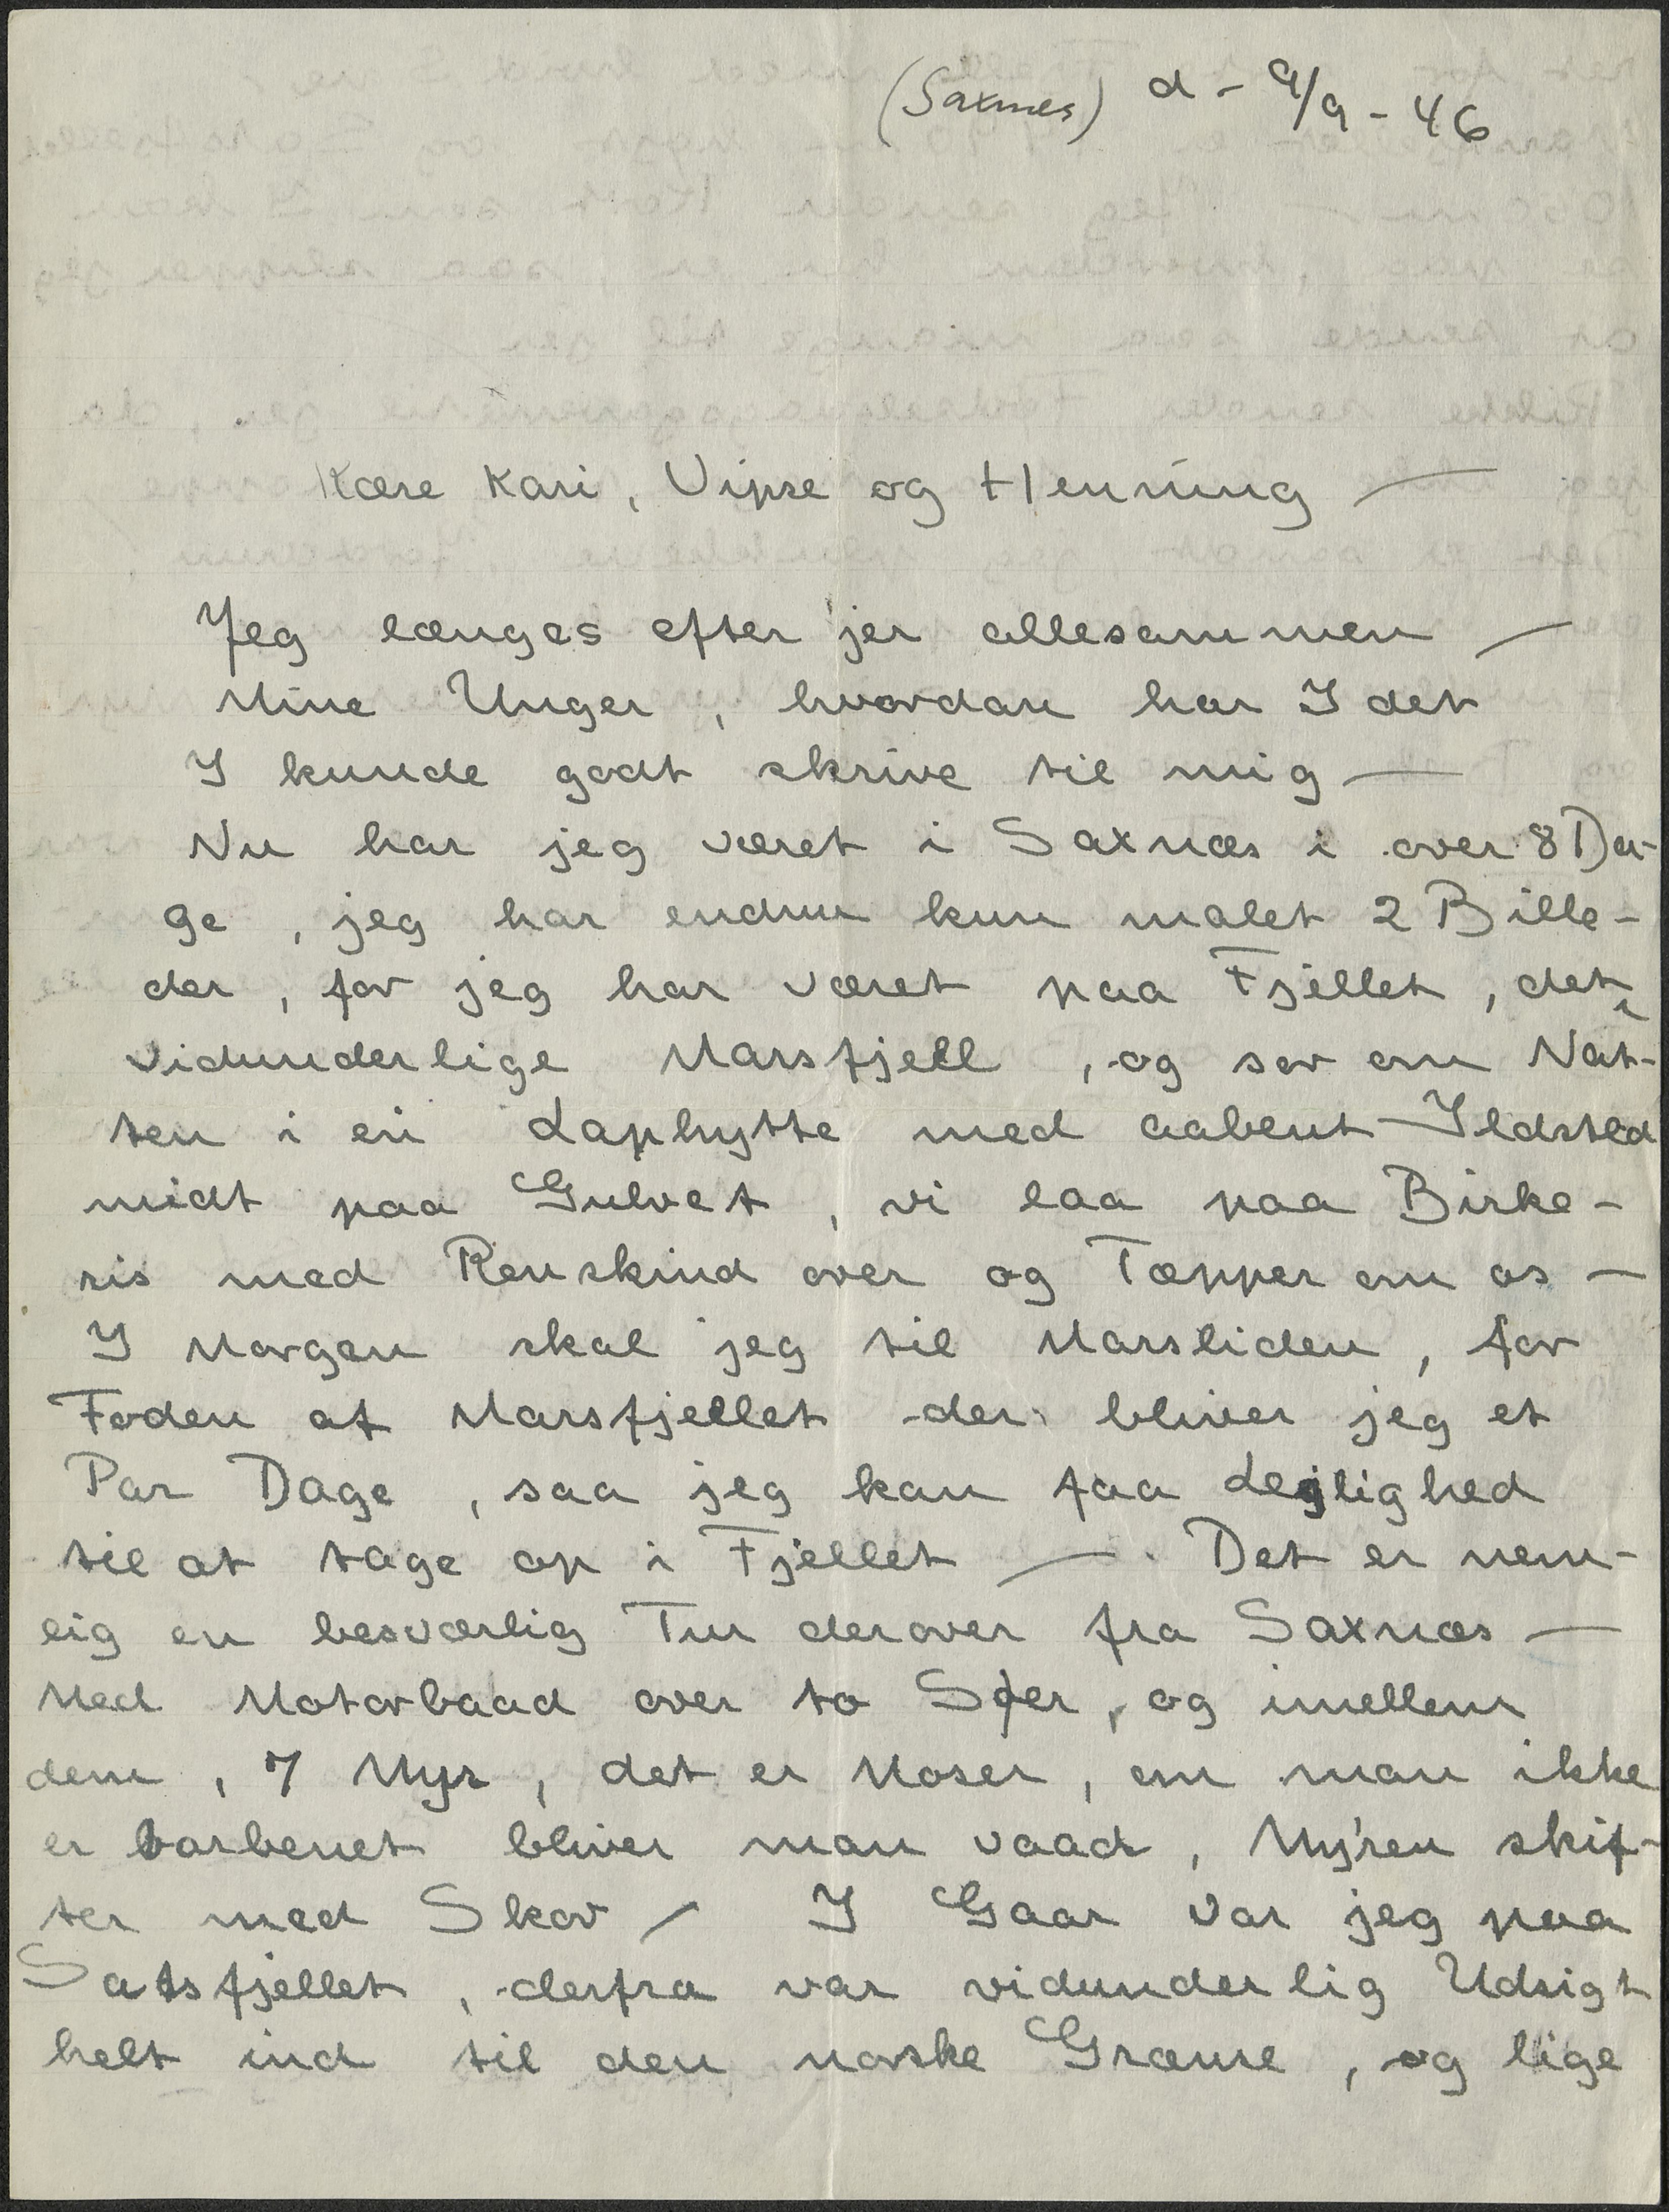 (Saxnes) d - 9/9 - 46
Kære Kari, Vipse og Henning —
Jeg længes efter jer allesammen —
Mine Unger, hvordan har I det
I kunde godt skrive til mig —
Nu har jeg været i Saxnæs i over 8 Da-
ge, jeg har endnu kun malet 2 Bille-
der, for jeg har været paa Fjellet, det
vidunderlige Marsfjell, og sov om Nat-
ten i en Laphytte med aabent Ildsted
midt paa Gulvet, vi laa paa Birke-
ris med Renskind over og Tæpper om os —
I Morgen skal jeg til Marsliden, for
Foden af Marsfjellet der bliver jeg et
Par Dage, saa jeg kan faa Lejlighed
til at tage op i Fjellet —. Det er nem-
lig en besværlig Tur derover fra Saxnæs —
Med Motorbaad over to Søer, og imellem
dem, 7 Myr, det er Moser, om man ikke
er barbenet bliver man vaad, Myren skif-
ter med Skov — I Gaar var jeg paa
Satsfjellet, derfra var vidunderlig Udsigt
helt ind til den norske Grænse, og lige